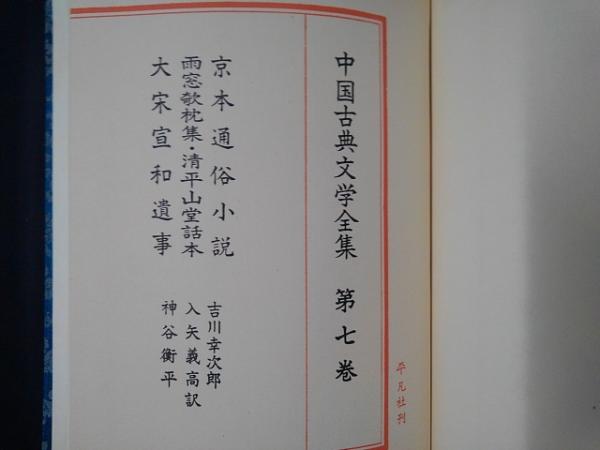 中国古典文学全集　第七巻
京本通俗小説
雨窓欹枕集・清平山堂話本
大宋宣和遺事
吉川幸次郎
入矢義高訳
神谷衡平
平凡社刊